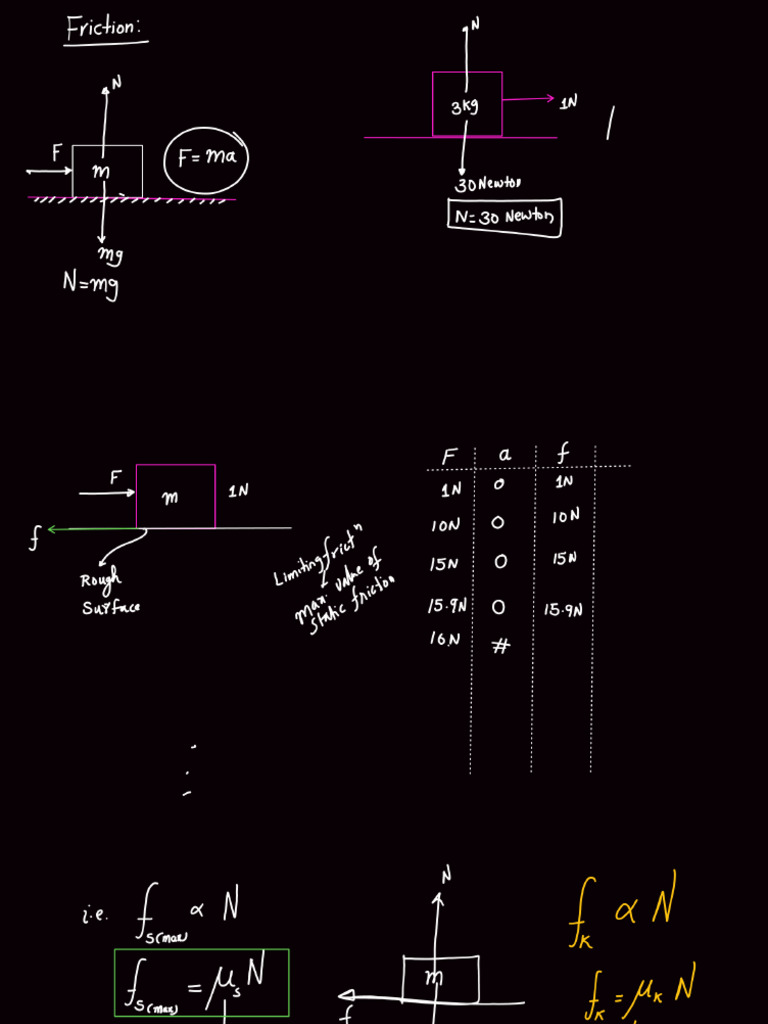 Friction:
N
F
m
F = ma
mg
N=mg
N
3kg
1N
30 Newton
N = 30 Newton
F
m
1N
f
Rough
Surface
Limiting frictⁿ
max. value of
static friction
F a f
1N 0 1N
10N 0 10N
15N 0 15N
15.9N 0 15.9N
16N #
i.e. f_s(max) ∝ N
f_s(max) = μ_s N
N
m
f
f_k ∝ N
f_k = μ_k N